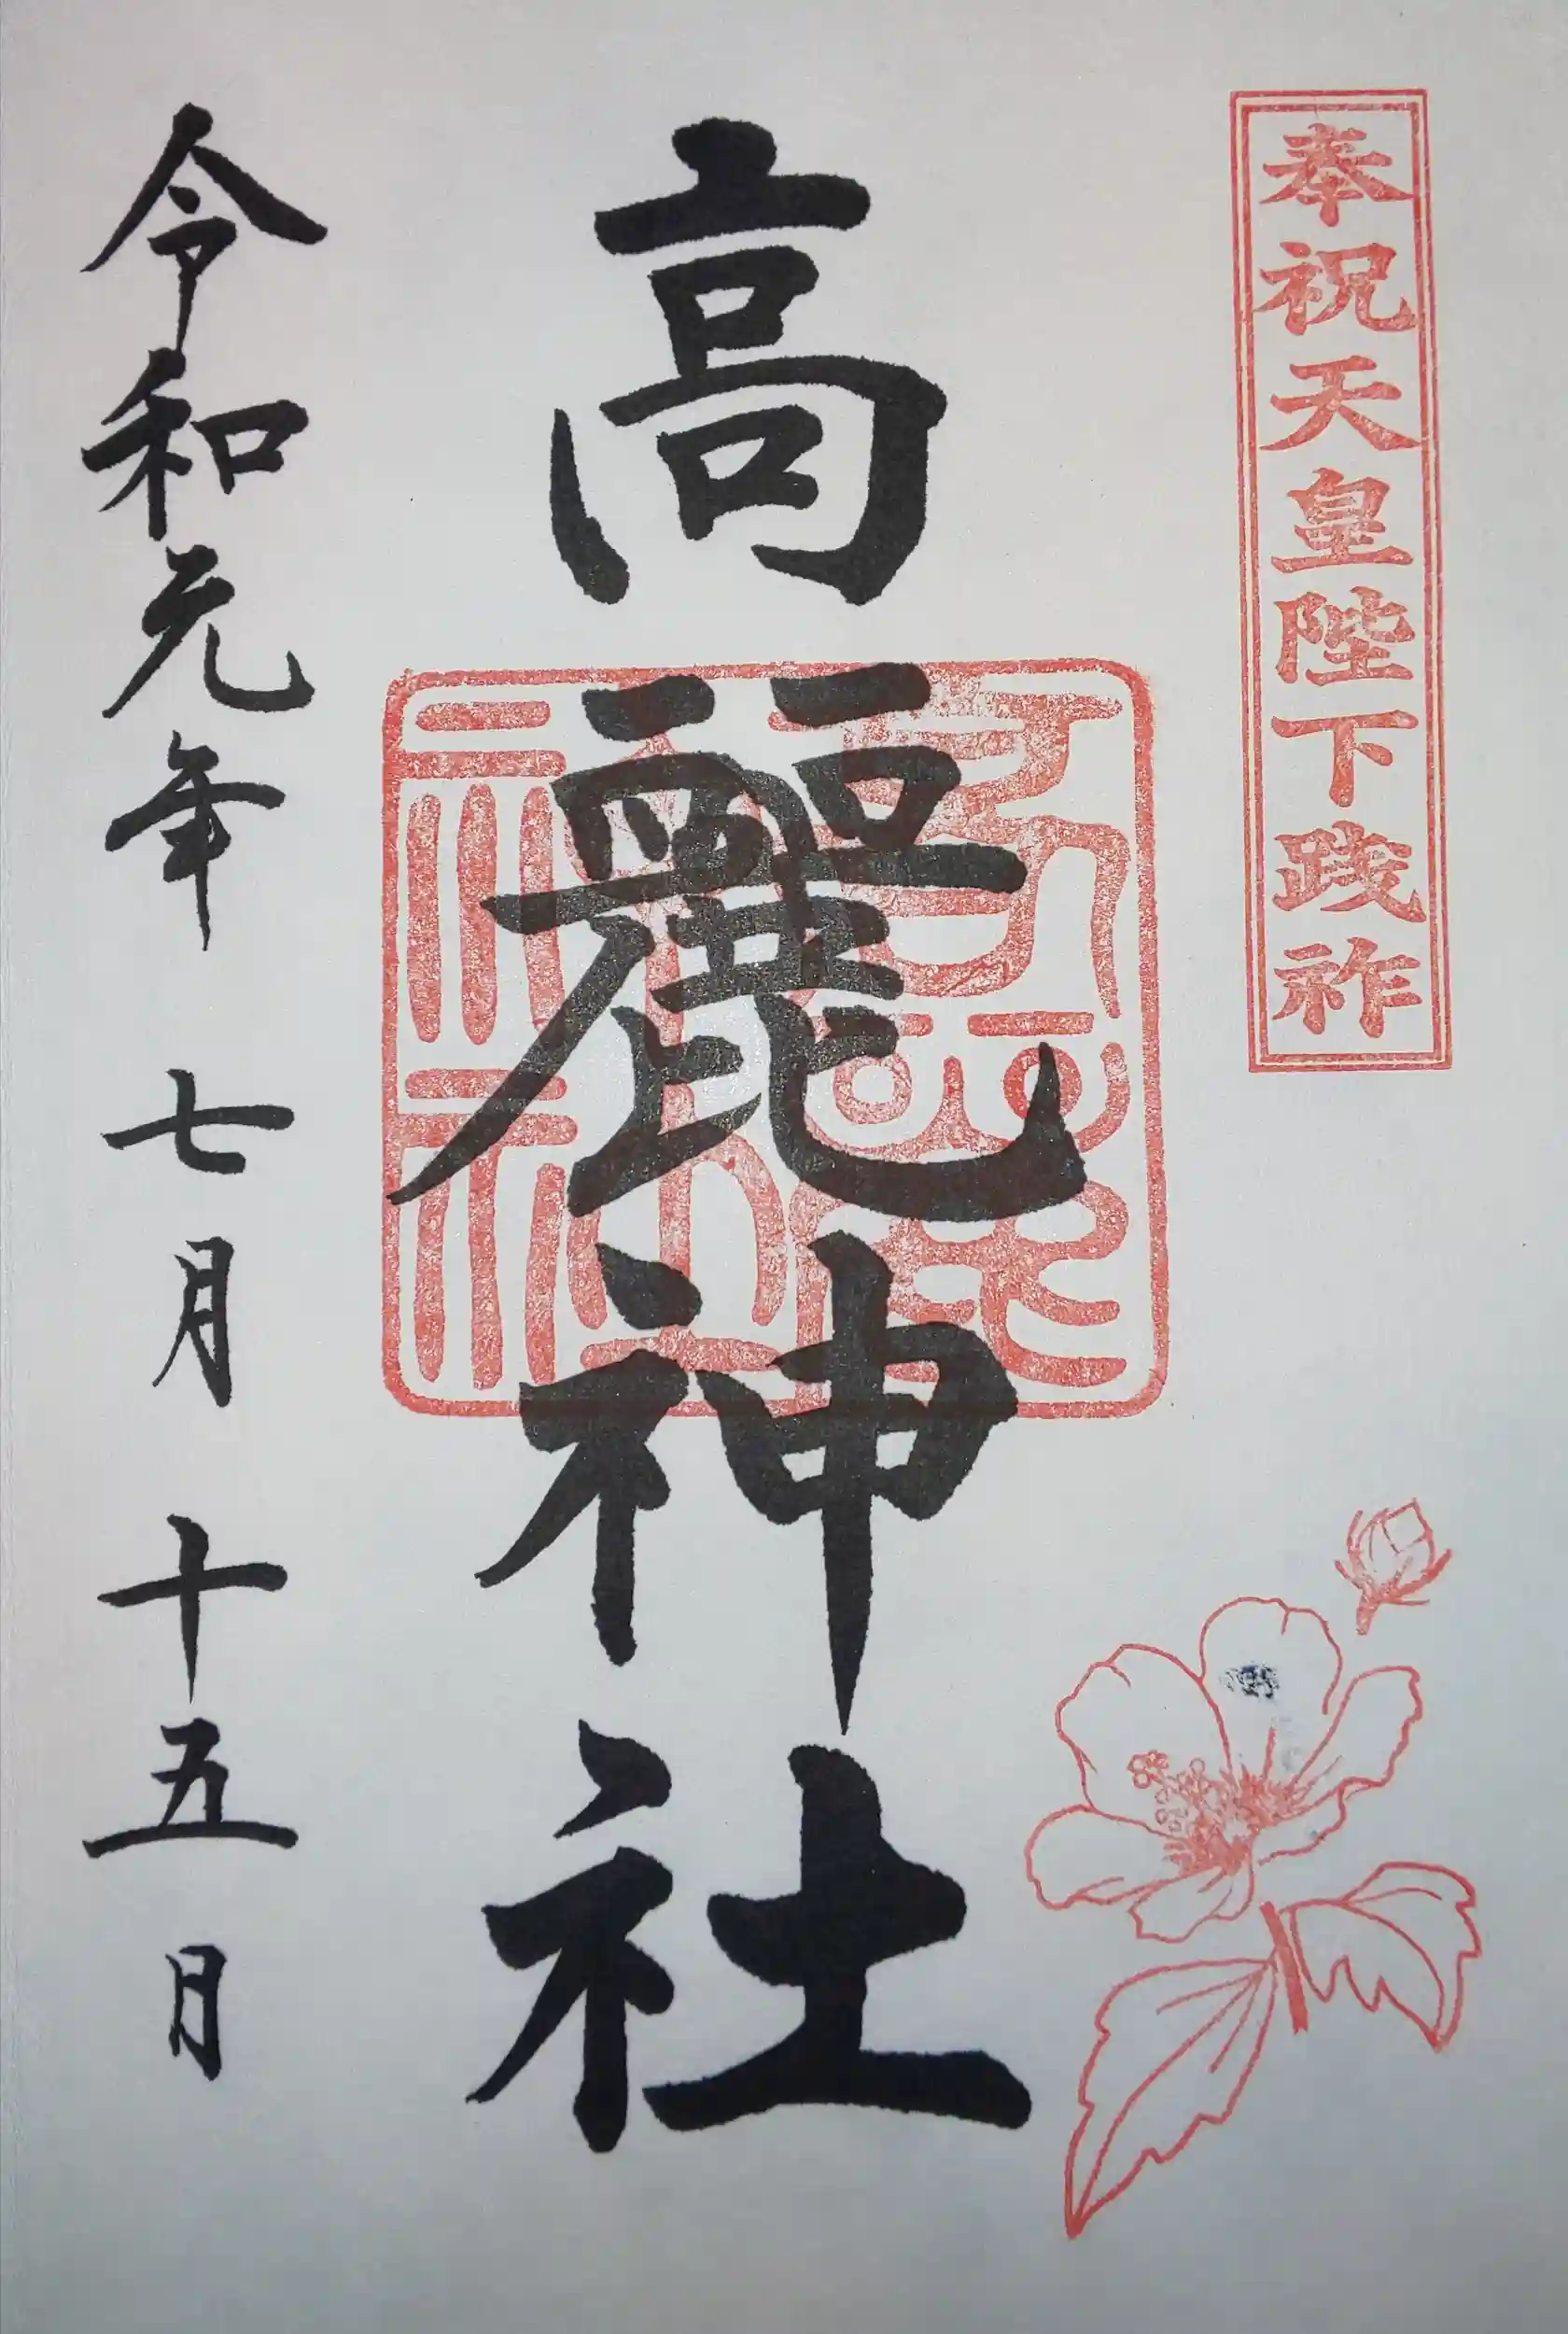 奉祝天皇陛下践祚
高麗神社
令和元年七月十五日